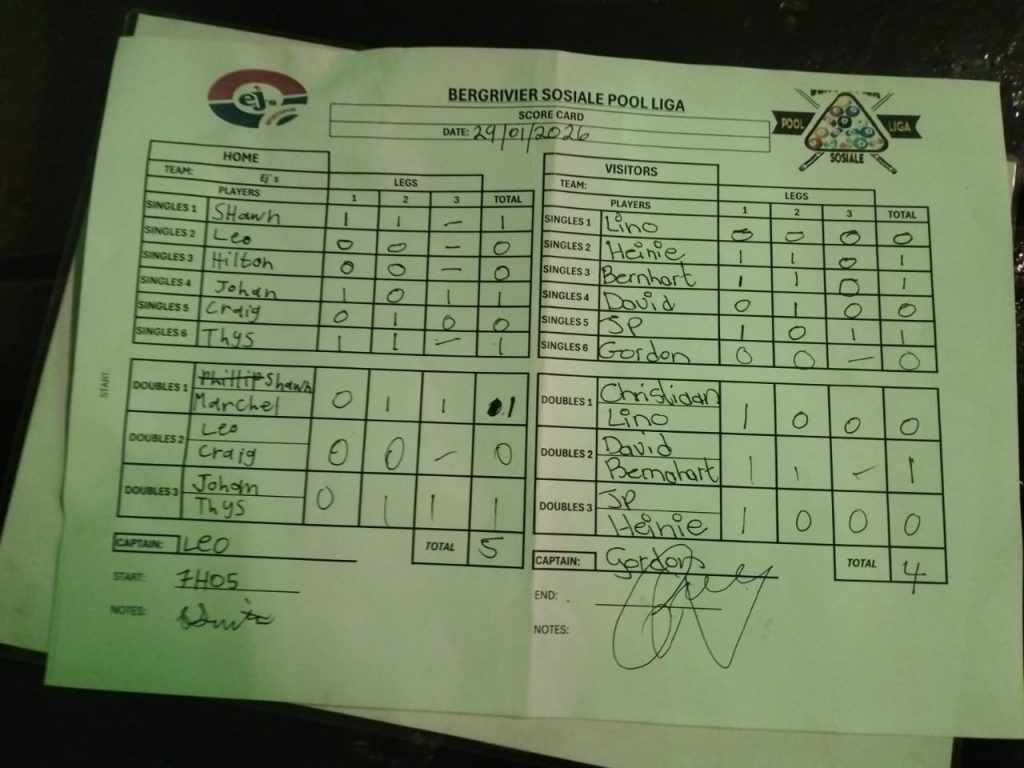 ej's
BERGRIVIER SOSIALE POOL LIGA
SCORE CARD
DATE: 29/01/2026
POOL LIGA
SOSIALE
HOME
TEAM: Ej's
LEGS
PLAYERS 1 2 3 TOTAL
SINGLES 1 SHawn 1 1 – 1
SINGLES 2 Leo 0 0 – 0
SINGLES 3 Hilton 0 0 – 0
SINGLES 4 Johan 1 0 1 1
SINGLES 5 Craig 0 1 0 0
SINGLES 6 Thys 1 1 – 1
START:
DOUBLES 1 Phillip Shawn
Marchel 0 1 1 1
DOUBLES 2 Leo
Craig 0 0 – 0
DOUBLES 3 Johan
Thys 0 1 1 1
CAPTAIN: LEO TOTAL 5
START: 7H05
NOTES:
VISITORS
TEAM:
LEGS
PLAYERS 1 2 3 TOTAL
SINGLES 1 Lino 0 0 0 0
SINGLES 2 Heinie 1 1 0 1
SINGLES 3 Bernhart 1 1 0 1
SINGLES 4 David 0 1 0 0
SINGLES 5 JP 1 0 1 1
SINGLES 6 Gordon 0 0 – 0
DOUBLES 1 Christiaan
Lino 1 0 0 0
DOUBLES 2 David
Bernahart 1 1 – 1
DOUBLES 3 JP
Heinie 1 0 0 0
CAPTAIN: Gordon TOTAL 4
END:
NOTES: